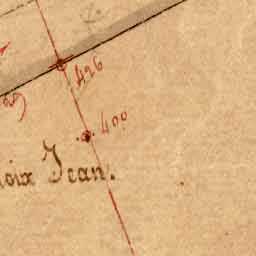 426
400
oix Jean.